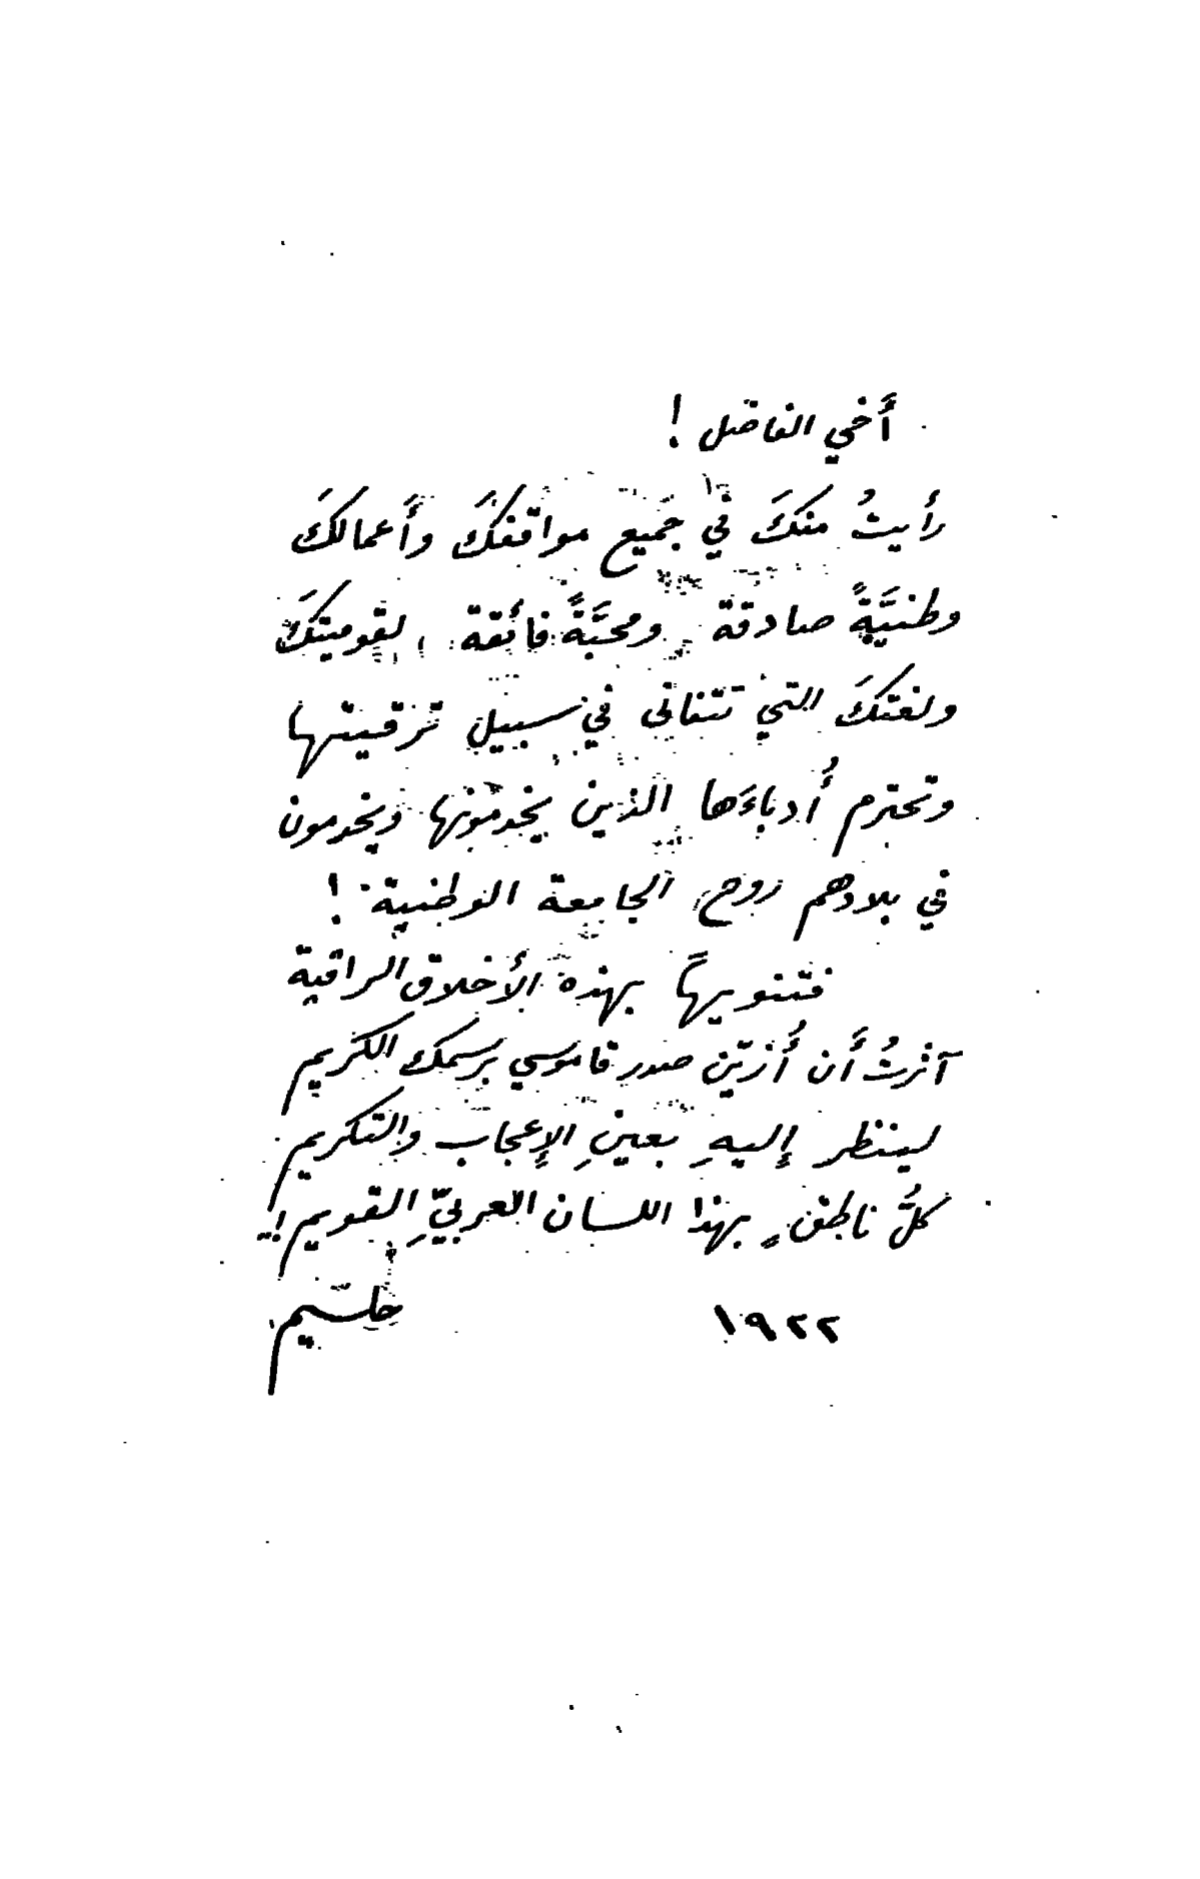 أَخي الفاضل !
رأَيتُ منكَ في جَميع مواقفكَ وأَعمالكَ
وطنيَّةً صادقة ومحبَّةً فائقة ، لقوميتكَ
ولغتكَ التي تتفانى في سبيل ترقيتها
وتحترم أُدباءَها الذين يخدمونها ويخدمون
في بلادهم روح الجامعة الوطنية !
فتنويهاً بهذه الأخلاق الراقية
آثرتُ أَن أُزيّن صدر قاموسي برسمك الكريم
لينظر إليهِ بعينِ الإعجاب والتكريم
كلُّ ناطقٍ بهذا اللسان العربيِّ القويم !
١٩٢٢ حليم